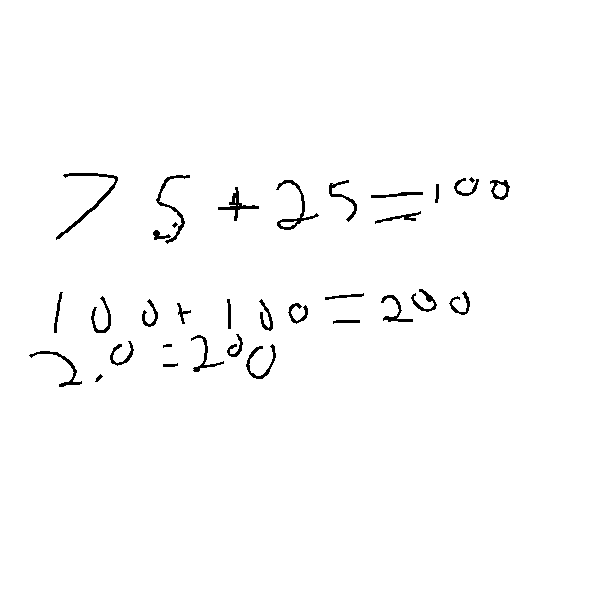 75+25=100
100+100=200
2.0=200